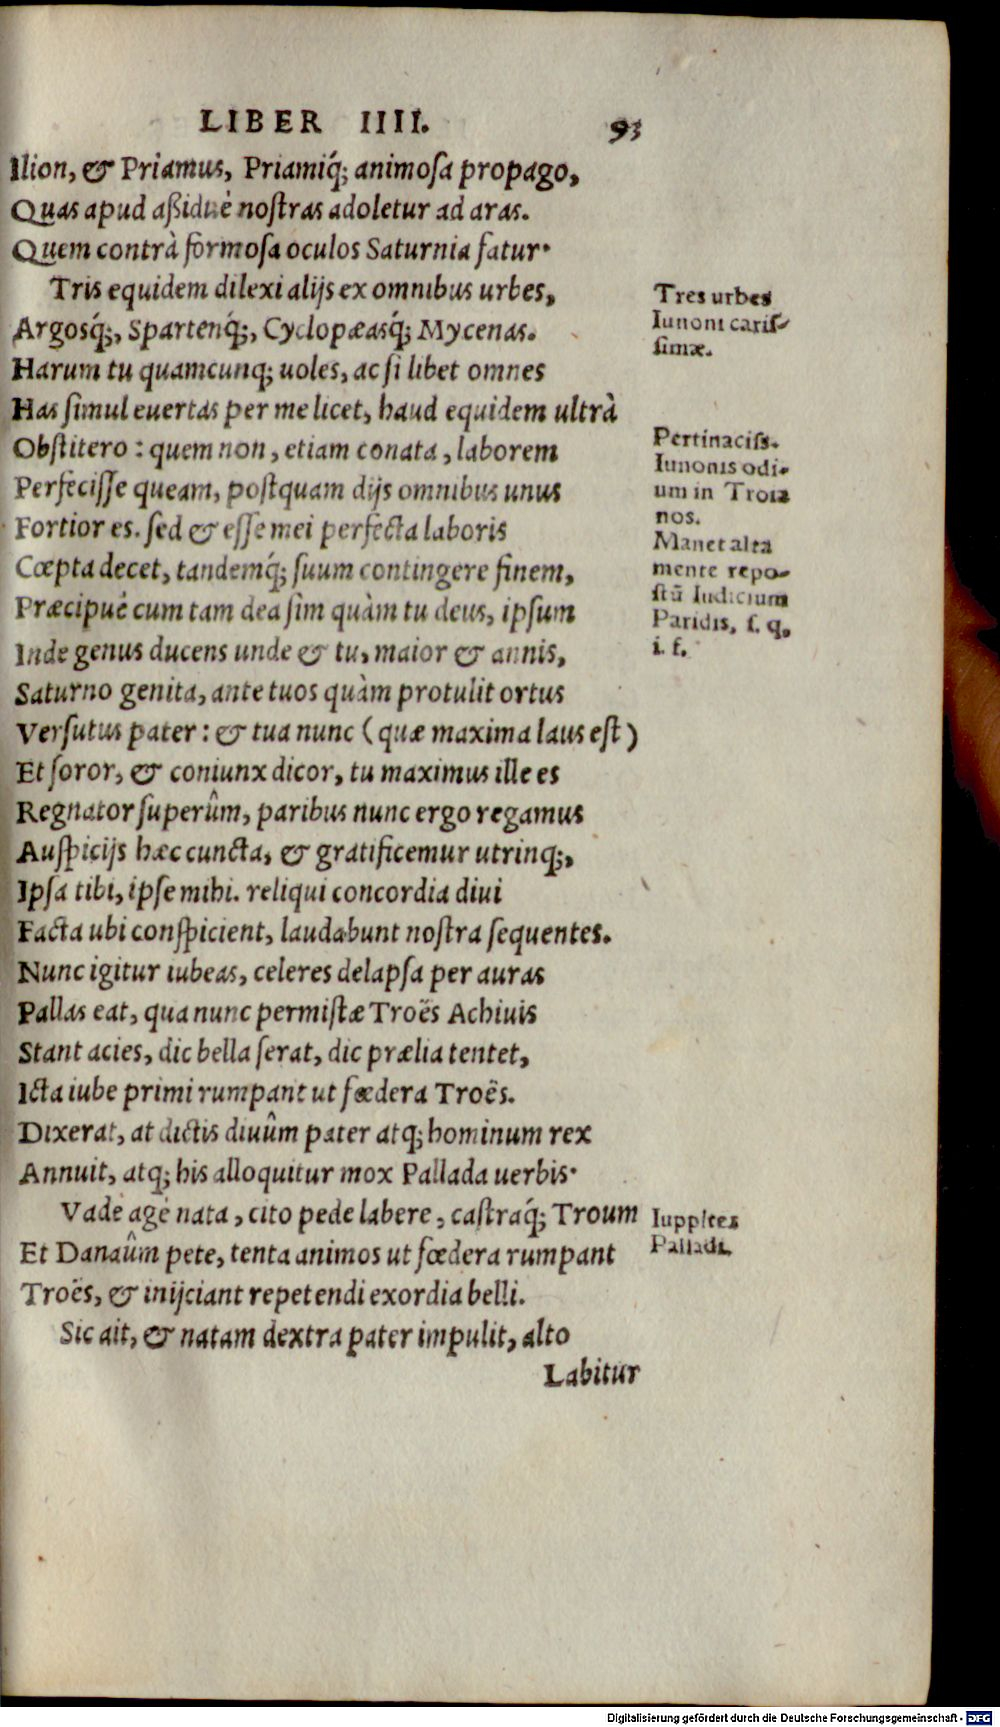 LIBER IIII. 93
Ilion, & Priamus, Priamiq́; animosa propago,
Quas apud aßiduè nostras adoletur ad aras.
Quem contrà formosa oculos Saturnia fatur.
Tris equidem dilexi alijs ex omnibus urbes,
Argosq́;, Spartenq́;, Cyclopæasq́; Mycenas.
Harum tu quamcunq; uoles, ac si libet omnes
Has simul euertas per me licet, haud equidem ultrà
Obstitero: quem non, etiam conata, laborem
Perfecisse queam, postquam dijs omnibus unus
Fortior es. sed & esse mei perfecta laboris
Cœpta decet, tandemq́; suum contingere finem,
Præcipuè cum tam dea sim quàm tu deus, ipsum
Inde genus ducens unde & tu, maior & annis,
Saturno genita, ante tuos quàm protulit ortus
Versutus pater: & tua nunc (quæ maxima laus est)
Et soror, & coniunx dicor, tu maximus ille es
Regnator superûm, paribus nunc ergo regamus
Auspicijs hæc cuncta, & gratificemur utrinq;,
Ipsa tibi, ipse mihi. reliqui concordia diui
Facta ubi conspicient, laudabunt nostra sequentes.
Nunc igitur iubeas, celeres delapsa per auras
Pallas eat, qua nunc permistæ Troës Achiuis
Stant acies, dic bella serat, dic prælia tentet,
Icta iube primi rumpant ut fœdera Troës.
Dixerat, at dictis diuûm pater atq; hominum rex
Annuit, atq; his alloquitur mox Pallada uerbis.
Vade age nata, cito pede labere, castraq́; Troum
Et Danaûm pete, tenta animos ut fœdera rumpant
Troës, & inijciant repetendi exordia belli.
Sic ait, & natam dextra pater impulit, alto
Labitur
Tres urbes
Iunoni caris-
simæ.
Pertinaciss.
Iunonis odi-
um in Troia
nos.
Manet alta
mente repo-
stū Iudicium
Paridis, s. q,
i. f.
Iuppiter
Palladi.
Digitalisierung gefördert durch die Deutsche Forschungsgemeinschaft - DFG